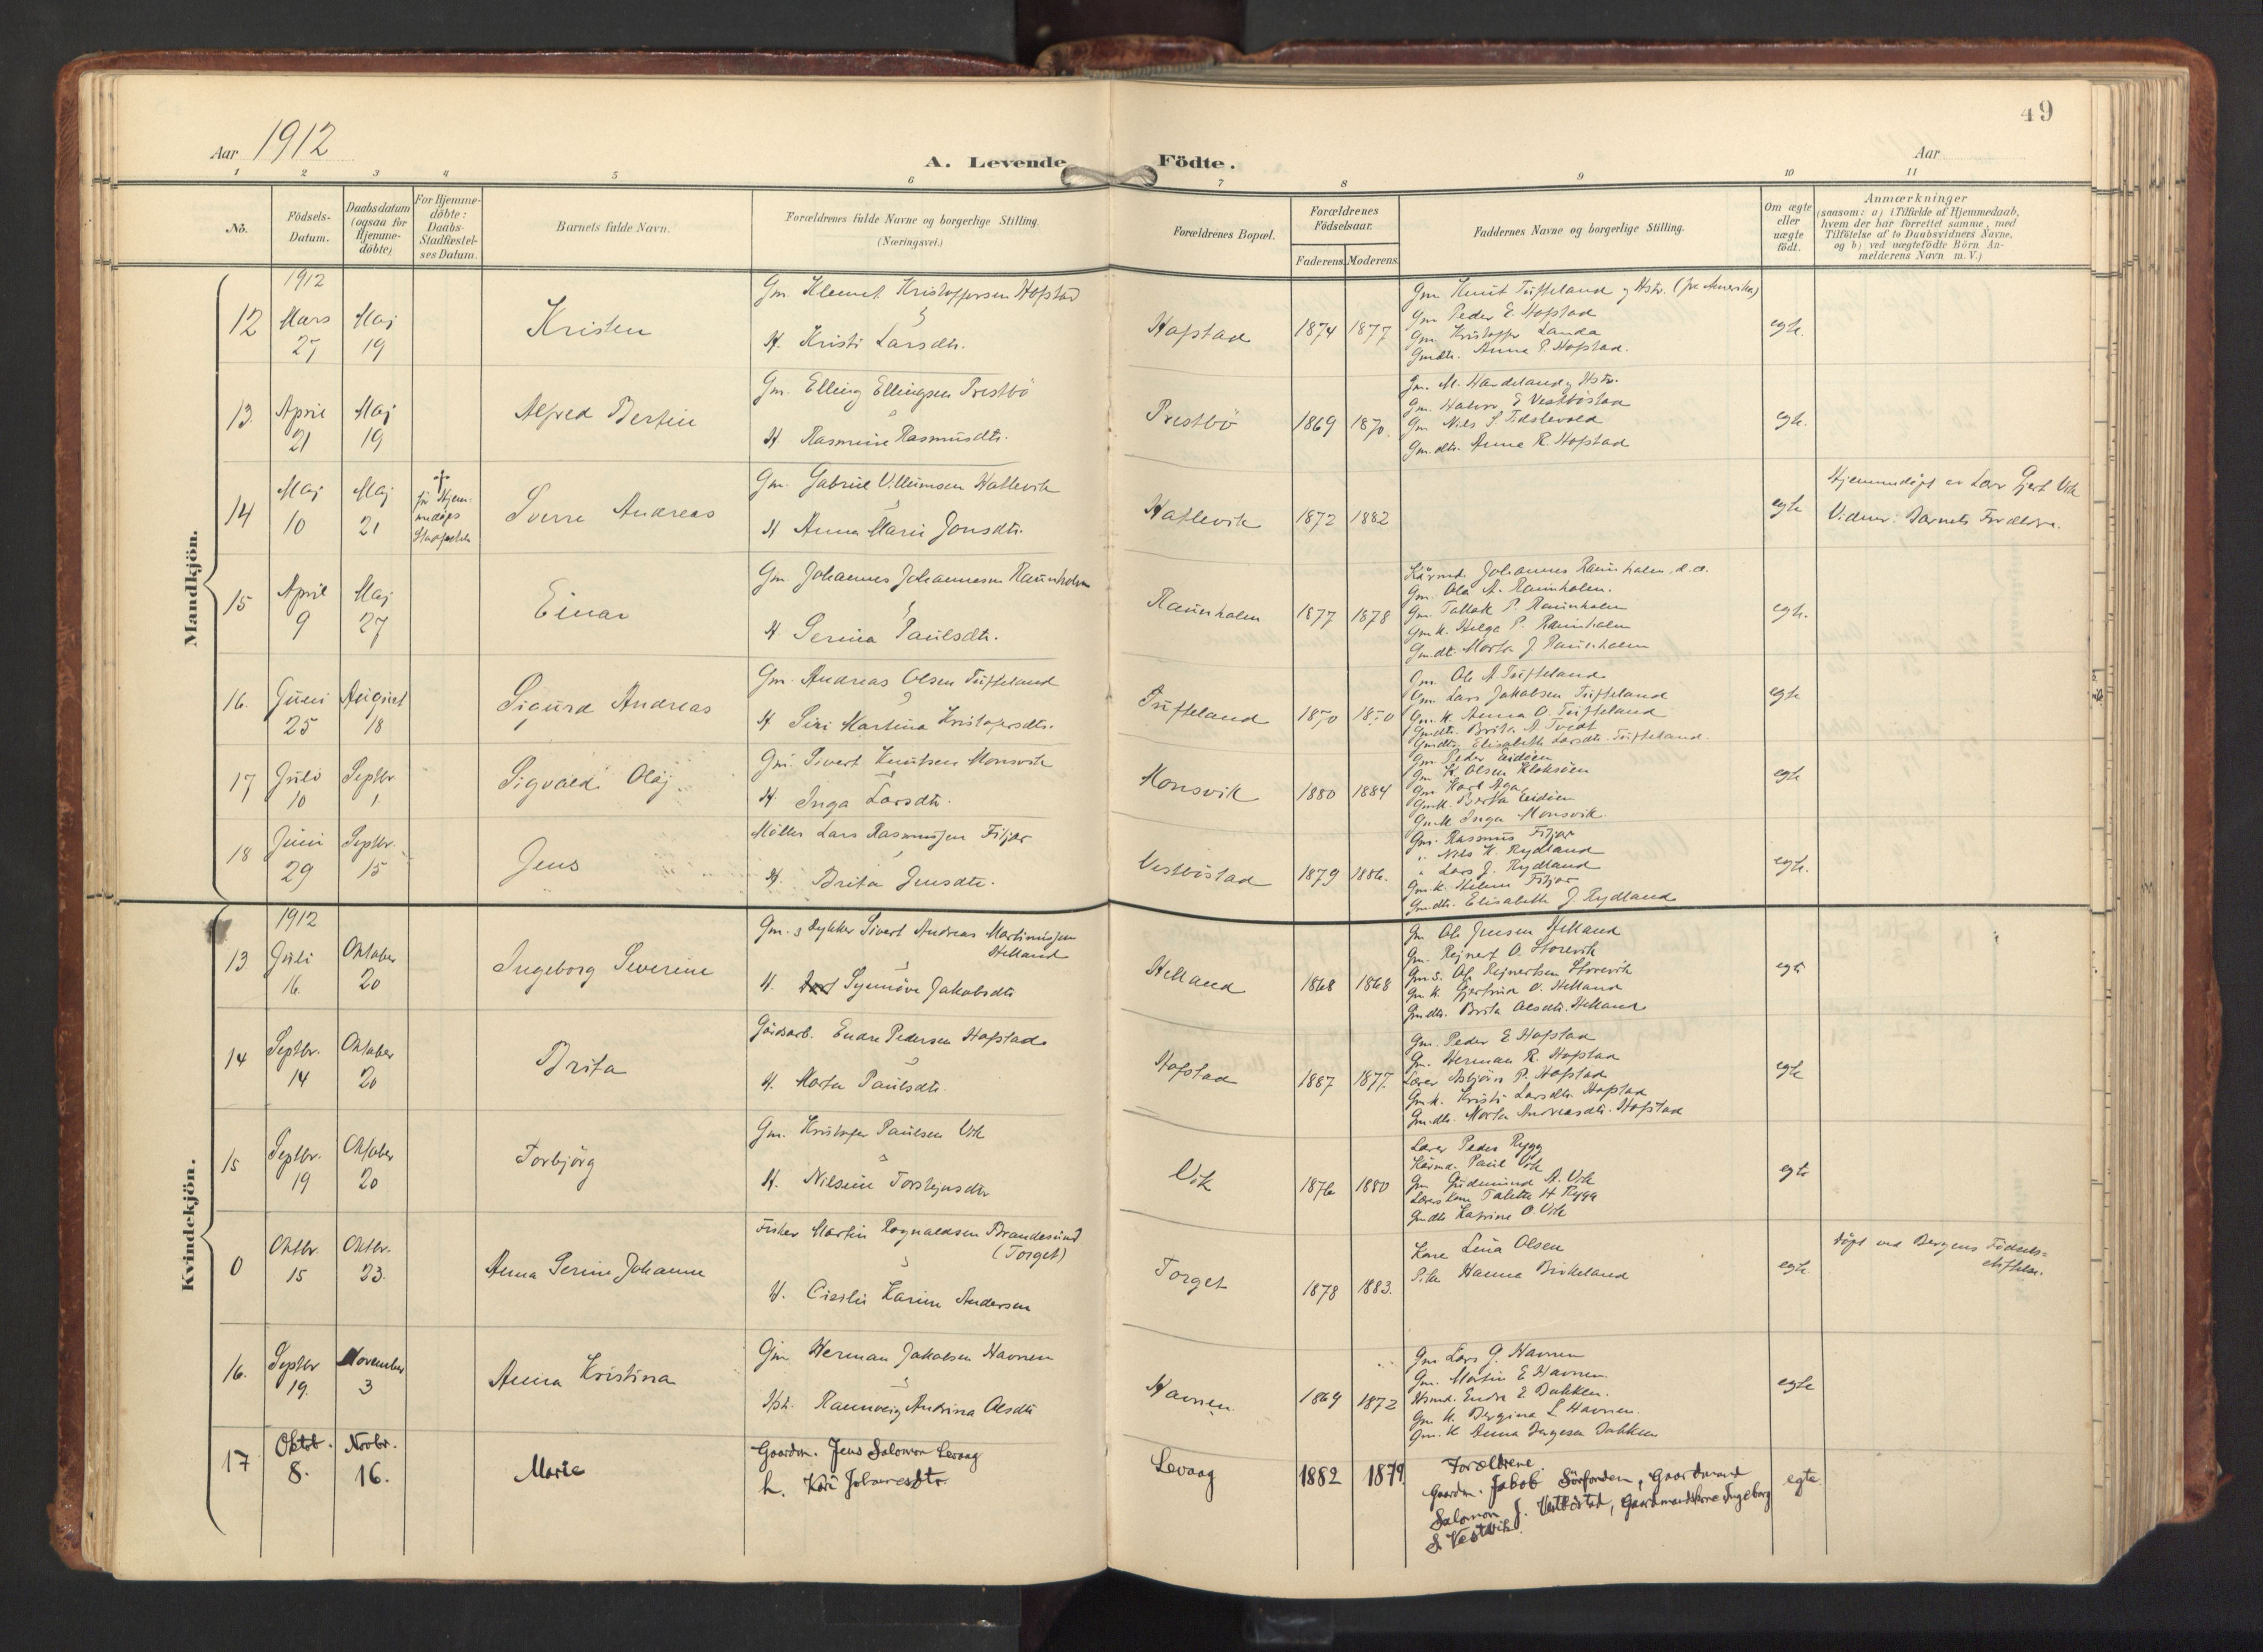 49
Aar 1912
A. Levende Födte.
Aar
1 2 3 4 5 6 7 8 9 10 11
No.
Födsels-
Datum.
Daabsdatum
(ogsaa for
Hjemme-
döbte)
For Hjemme-
döbte:
Daabs-
Stadfæstel-
ses Datum.
Barnets fulde Navn.
Forældrenes fulde Navne og borgerlige Stilling.
(Næringsvei.)
Forældrenes Bopæl.
Forældrenes
Födselsaar.
Faderens. Moderens.
Faddernes Navne og borgerlige Stilling.
Om ægte
eller
uægte
födt.
Anmærkninger
(saasom: a) i Tilfælde af Hjemmedaab,
hvem der har forrettet samme, med
Tilföielse af to Daabsvidners Navne,
og b) ved uægtefödte Börn An-
melderens Navn m. V.)
Mandkjön.
1912
12 Mars 27 Maj 19
Kristen
Gm. Klemet Kristoffersen Hofstad
H. Kristi Larsdtr.
Hofstad 1874 1877
Gm Knut Tufteland og Hstr. (fra Amerika)
Gm Peder E. Hofstad
Gm Kristoffer Landa
Gmdtr. Anna P. Hofstad.
egte.
13. April 21 Maj 19
Alfred Bertin
Gm. Elling Ellingsen Prestbö
H Rasmine Rasmusdtr.
Prestbö 1869 1870.
Gm. M. Handeland og Hstr.
Gm. Halvor E Vestböstad
Gm Nils S.
Gm.dtr. Anna R. Hofstad
egte.
14 Maj 10 Maj 21
†
før Hjem-
medåps
Sverre Andreas
Gm. Gabriel Villumsen Hatlevik
H Anna Marie Jonsdtr.
Hatlevik 1872 1882
egte
Hjemmedöpt av Lars Gjert Vik
Vidner: Barnets Forældre.
15 April 9 Maj 27
Einar
Gm. Johannes Johannesen Raunholm
H Serina Paulsdtr.
Raunholm 1877 1878
Kårmd. Johannes Raunholm, d.æ.
Gm. Ola A. Raunholm.
Gm. Tollak P. Raunholm
Gm k. Helga P. Raunholm
Gm.dtr. Marta J Raunholm
egte.
16. Juni 25 August 18
Sigurd Andreas
Gm. Andreas Olsen Tufteland
H Siri Martina Kristofersdtr.
Tufteland 1870 1870
Gm. Ole A Tufteland
Gm. Lars Jakobsen Tufteland
Gm.k. Anna O. Tufteland
Gmdtr. Brita A Tvedt
Gmdtr. Elisabeth Larsdtr. Tufteland.
egte
17 Juli 10 Septbr 1
Sigvald Olaj.
Gm. Sivert Knutsen Monsvik
H Inga Larsdtr.
Monsvik 1880 1884
Gm. Peder Eidöen
Gm K. Olsen Kloksöen
Gm Karl Aga
Gmk. Berta Eidöen
Gmk Inga Monsvik.
egte
18 Juni 29 Septbr. 15
Jens
Möller Lars Rasmussen Filjar
H. Brita Jensdtr.
Vestböstad 1879 1886.
Gm. Rasmus Fitjar
" Nils K. Rydland
" Lars J. Rydland
Gm.k. Helene Fitjar
Gm.dtr. Elisabeth J Rydland
egte.
Kvindekjön.
1912
13 Juli 16 Oktober 20
Ingeborg Severine
Gm. & dykker Sivert Andreas Martinussen
Helland
H. Synnöve Jakobsdtr
Helland 1868 1868
Gm Ole Jensen Helland
Gm. Rejnert O. Storevik
Gm s. Ole Rejnertsen Storevik
Gm k. Gjertrud O. Helland
Gmdtr. Brita Olesdtr. Helland
egte
14 Septbr. 14 Oktober 20
Brita
Gårdsarb. Endre Pedersen Hofstad
H. Marta Paulsdtr.
Hofstad 1887 1877.
Gm. Peder E Hofstad
Gm. Herman R. Hofstad
Lærer Asbjörn P. Hofstad
Gm.k. Kristi Larsdtr. Hofstad
Gm.dtr. Marta Andreasdtr. Hofstad
egte
15 Septbr. 19 Oktober 20
Torbjörg
Gm. Kristofer Paulsen Vik
H. Nilsine Torstejnsdtr
Vik 1876 1880
Lærer Peder Rygg
Kårmd. Paul Vik
Gm Gudmund A. Vik
Lærerkone Taletta H Rygg
Gmdtr Katrine O. Vik
egte
0 Oktbr. 15 Oktbr. 23.
Anna Serine Johanne
Fisker Martin Rognaldsen Brandesund
(Torget)
H. Cicilie Karine Andersen
Torget 1878 1883.
Kone Lina Olsen
Pike Hanna Birkeland
egte
Döpt ved Bergens Fødsels-
stiftelse.
16. Septbr 19. November 3
Anna Kristina
Gm. Herman Jakobsen Havnen
Hst. Raunveig Andrina Olsdtr
Havnen. 1869 1872
Gm Lars G. Havnen
Gm. Martin E Havnen.
Hsmd. Endre E Bakken.
Gm k. Bergina L Havnen.
Gm. k Anna Bergesen Bakken
egte
17 Oktob. 8. Novbr. 16.
Marie
Gaardm. Jens Salomon Levaag
h. Kari Johannesdtr.
Levaag 1882 1879.
Forældrene.
Gaardm. Jakob Sörfonden, Gaardmand
Salomon J. Vestböstad, Gaardmandskone Ingeborg
S. Vestvik.
egte.